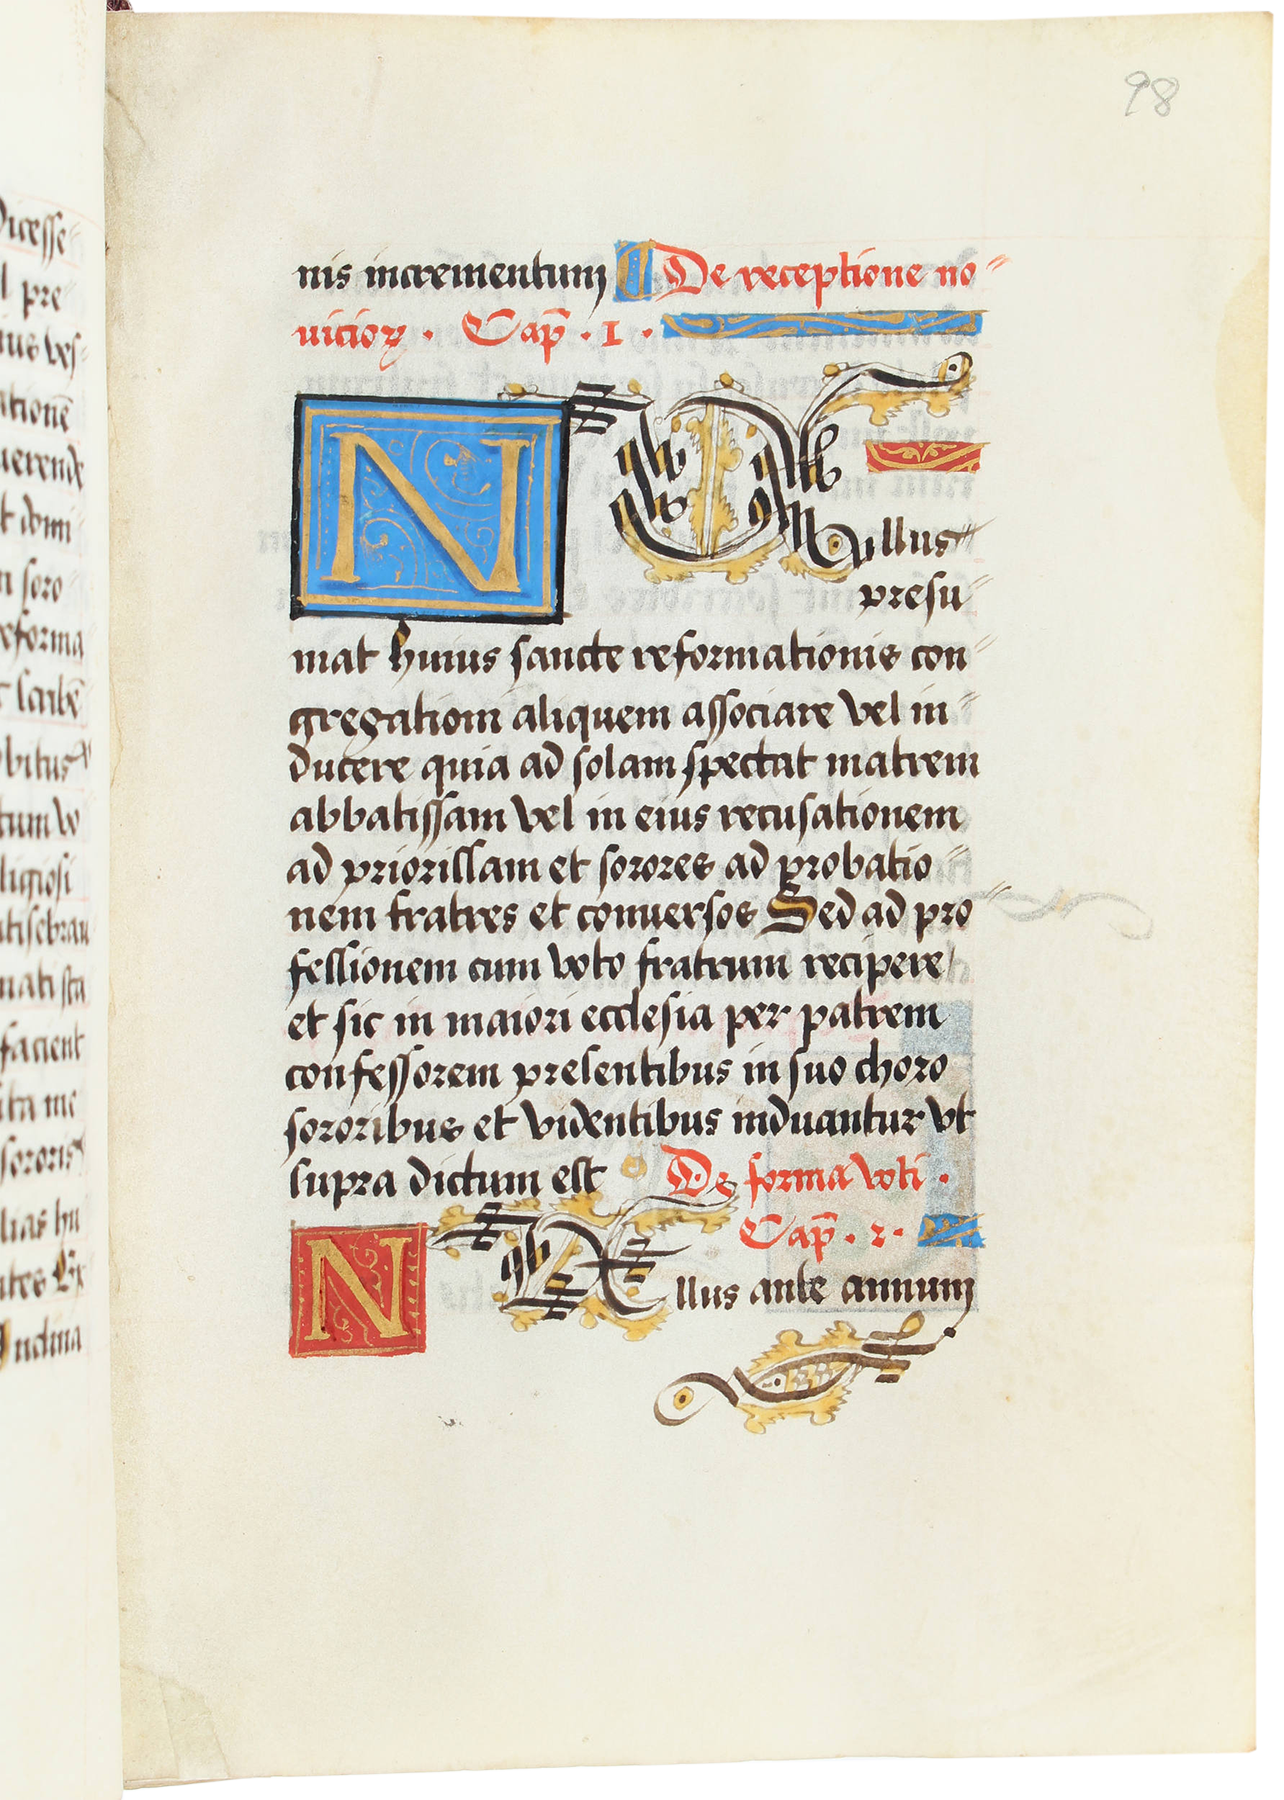 98
nis incrementum De receptione no
uicioꝝ · Cap̃ · 1 ·
N Ullus
presu
mat huius sancte reformationis con
gregationi aliquem associare vel in
ducere quia ad solam spectat matrem
abbatissam vel in eius recusationem
ad priorissam et sorores ad probatio
nem fratres et conuersos Sed ad pro
fessionem cum voto fratrum recipere
et sic in maiori ecclesia per patrem
confessorem presentibus in suo choro
sororibus et videntibus induantur vt
supra dictum est De forma voti ·
Cap̃ · 2 ·
N Ullus ante annum
icesse
pre
ues
ationē
uerende
t domi
soro
eforma
scribē
obitus
tum vo
ligiosi
mati sta
facient
ita me
sororis
lias hu
ndina